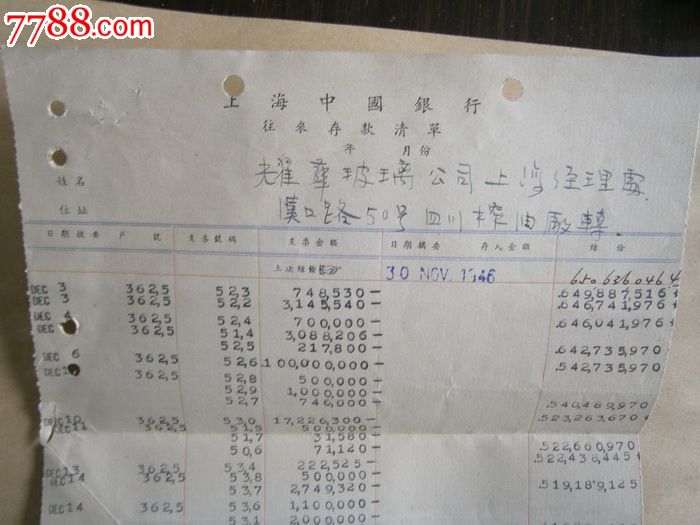 7788.com
上海中國銀行
往來存款清單
年 月份
姓名 耀華玻璃公司上海經理處
住址 漢口路50号四川榨油廠轉
日期摘要 戶號 支票號碼 支票金額 日期摘要 存入金額 結餘
上次結餘 30 NOV. 1946
DEC 3 362,5 52,3 748,530- .649,887,516+
DEC 3 362,5 52,2 3,145,540- .646,741,976+
DEC 4 362,5 52,4 700,000- .646,041,976+
DEC 362,5 51,4 3,088,206-
52,5 217,800- .642,735,970
DEC 6 362,5 52,6 .100,000,000- .542,735,970
DEC 362,5 52,8 500,000-
52,9 1,000,000-
52,7 746,000- .540,489,970
DEC 10 362,5 53,0 17,226,300- .523,263,670+
DEC 11 362,5 51,5 500,000-
51,7 31,580-
50,6 71,120- .522,660,970
DEC 13 362,5 53,4 222,525- .522,438,445+
DEC 14 362,5 53,8 500,000-
53,7 2,749,320- .519,189,125
DEC 14 362,5 53,6 1,100,000-
53,1 2,000,000-